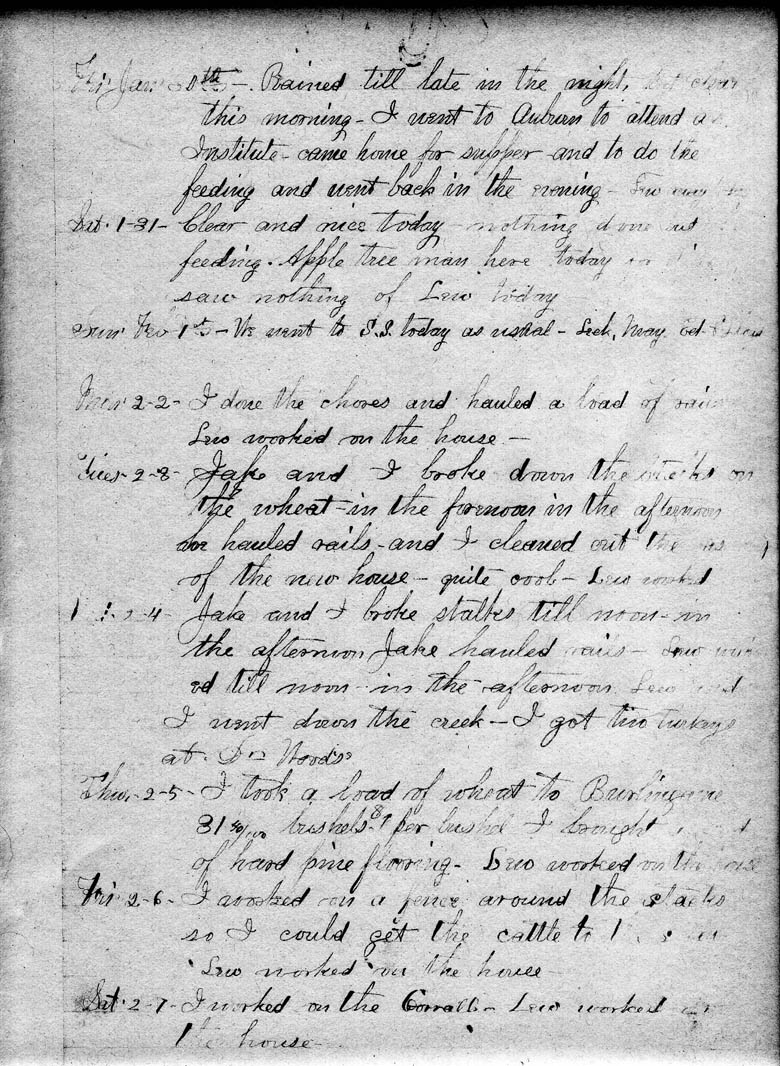 Fri Jan 30th - Rained till late in the night, but clear
this morning - I went to Auburn to attend a
Institute - came home for supper and to do the
feeding and went back in the evening -
Sat. 1-31 - Clear and nice today - nothing done but
feeding. Apple tree man here today
saw nothing of Lew today
Sun Feb 1st - We went to S.S. today as usual - Lock, May, Ed &
Mon 2-2 - I done the chores and hauled a load of rails
Lew worked on the house -
Tues 2-3 - Jake and I broke down the stalks on
the wheat - in the forenoon in the afternoon
he hauled rails - and I cleaned out the
of the new house - quite cool - Lew worked
2-4 - Jake and I broke stalks till noon - in
the afternoon Jake hauled rails - Lew work
ed till noon - in the afternoon Lew and
I went down the creek - I got two turkeys
at Dr Woods
Thur 2-5 - I took a load of wheat to Burlingame
31 bushels 87 per bushel I brought
of hard pine flooring - Lew worked on the house
Fri 2-6 - I worked on a fence around the stacks
so I could get the cattle to
Lew worked on the house
Sat 2-7 - I worked on the Corrall - Lew worked on
the house -